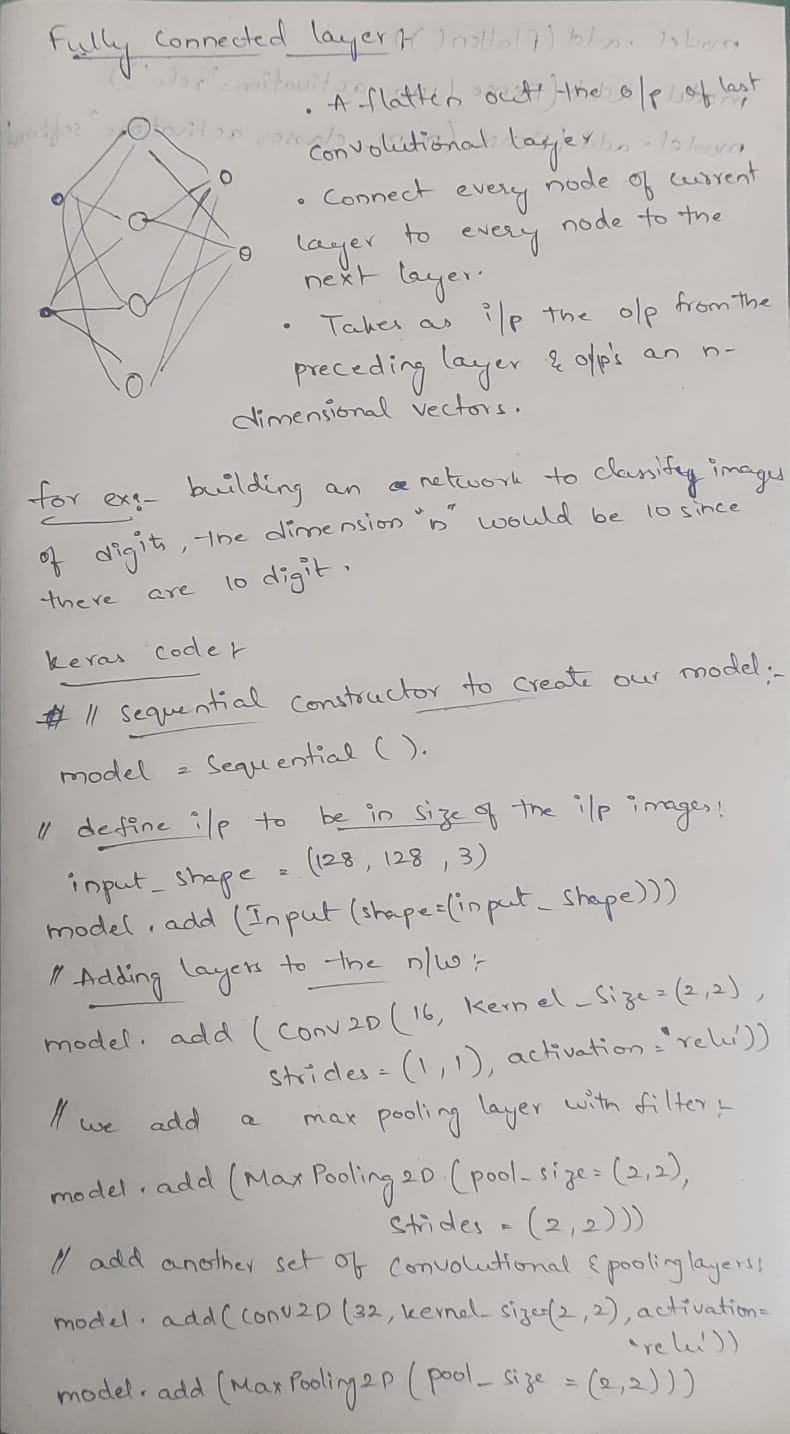 Fully connected layer :-
• A flatten out the o/p of last
convolutional layer.
• Connect every node of current
layer to every node to the
next layer.
• Takes as i/p the o/p from the
preceding layer & o/p's an n-
dimensional vectors.
for ex:- building an a network to classify images
of digits, the dimension "n" would be 10 since
there are 10 digit.
keras code :-
// sequential constructor to create our model :-
model = Sequential ( ).
// define i/p to be in size of the i/p images:
input_shape = (128, 128, 3)
model. add (Input (shape=(input_shape)))
// Adding layers to the n/w :-
model. add ( Conv2D (16, Kernel_size = (2,2),
strides = (1,1), activation = 'relu'))
// we add a max pooling layer with filter :-
model. add (MaxPooling2D (pool_size = (2,2),
strides = (2,2)))
// add another set of convolutional & pooling layers:
model. add (Conv2D (32, kernel_size=(2,2), activation=
'relu'))
model. add (MaxPooling2D (pool_size = (2,2)))